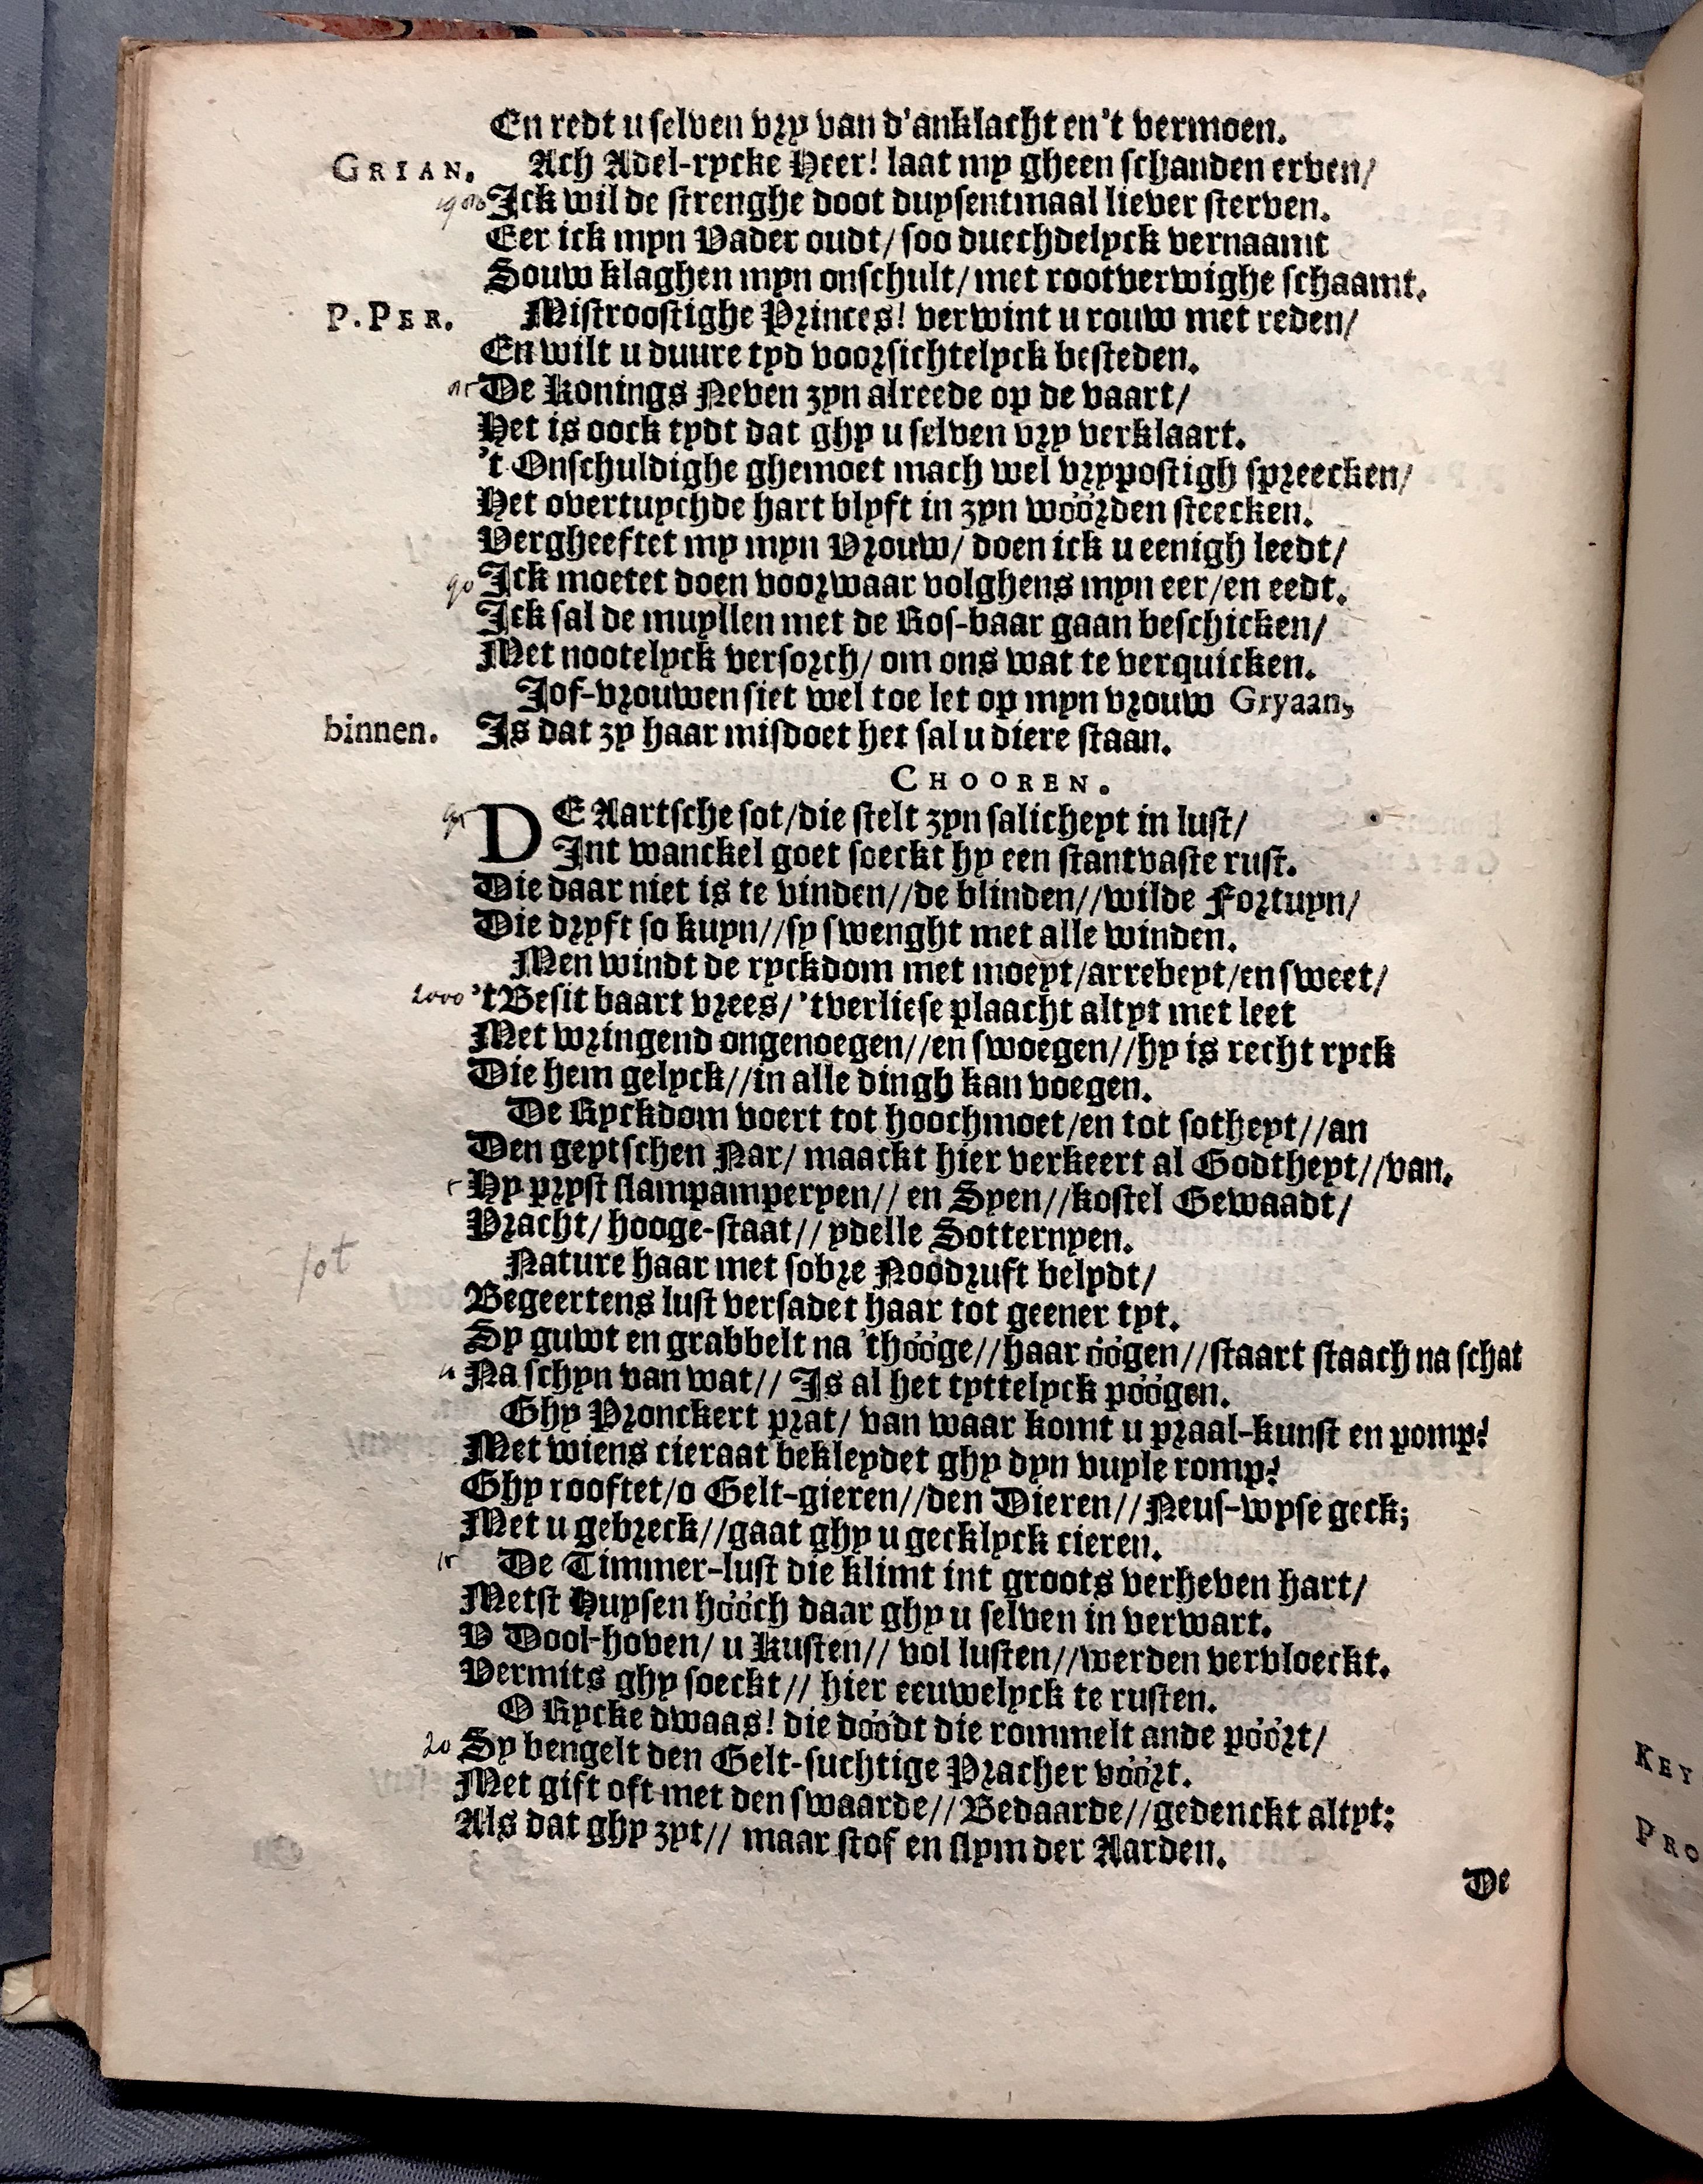 En redt u selven vry van d'anklacht en 't vermoen.
GRIAN. Ach Adel-rycke Heer! laat my gheen schanden erven/
1980 Ick wil de strenghe doot duysentmaal liever sterven.
Eer ick myn Vader oudt/ soo duechdelyck vernaamt
Souw klaghen myn onschult/ met rootverwighe schaamt.
P. PER. Mistroostighe Princes! verwint u rouw met reden/
En wilt u duure tyd voorsichtelyck besteden.
De Konings Neven zyn alreede op de vaart/
Het is oock tydt dat ghy u selven vry verklaart.
't Onschuldighe ghemoet mach wel vrypostigh spreecken/
Het overtuychde hart blyft in zyn wöörden steecken.
Vergheeftet my myn Vrouw/ doen ick u eenigh leedt/
90 Ick moetet doen voorwaar volghens myn eer/ en eedt.
Ick sal de muyllen met de Ros-baar gaan beschicken/
Met nootelyck versorch/ om ons wat te verquicken.
Jof-vrouwen siet wel toe let op myn vrouw Gryaan,
binnen. Is dat zy haar misdoet het sal u diere staan.
CHOOREN.
DE Aartsche sot/ die stelt zyn salicheyt in lust/
Int wanckel goet soeckt hy een stantvaste rust.
Die daar niet is te vinden// de blinden// wilde Fortuyn/
Die dryft so kuyn// sy swenght met alle winden.
Men windt de ryckdom met moeyt/ arrebeyt/ en sweet/
2000 't Besit baart vrees/ 't verliese plaacht altyt met leet
Met wringend ongenoegen// en swoegen// hy is recht ryck
Die hem gelyck// in alle dingh kan voegen.
De Ryckdom voert tot hoochmoet/ en tot sotheyt// an
Den geytschen Nar/ maackt hier verkeert al Godtheyt// van.
Hy pryst slampamperyen// en Syen// kostel Gewaadt/
Pracht/ hooge-staat// ydelle Sotternyen.
Nature haar met sobre Noödruft belydt/
sot
Begeertens lust versadet haar tot geener tyt.
Sy guwt en grabbelt na 't hööge// haar öögen// staart staach na schat
Na schyn van wat// Is al het tyttelyck pöögen.
Ghy Pronckert prat/ van waar komt u praal-kunst en pomp?
Met wiens cieraat bekleydet ghy dyn vuyle romp?
Ghy rooftet/ o Gelt-gieren// den Dieren// Neus-wyse geck;
Met u gebreck// gaat ghy u gecklyck cieren.
15 De Timmer-lust die klimt int groots verheven hart/
Metst Huysen hööch daar ghy u selven in verwart.
U Dool-hoven/ u Kusten// vol lusten// werden vervloeckt.
Vermits ghy soeckt// hier eeuwelyck te rusten.
O Rycke dwaas! die döödt die rommelt ande pöört/
20 Sy bengelt den Gelt-suchtige Pracher vöört.
Met gift oft met den swaarde// Bedaarde// gedenckt altyt:
Als dat ghy zyt// maar stof en slym der Aarden.
De
KEY
PRO